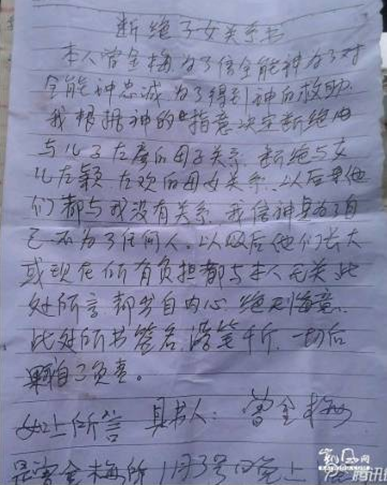 断绝子女关系书
本人曾金梅为了信全能神为了对
全能神忠诚为了得到神的救助
我根据神的旨意决定断绝
与儿子左 的母子关系 断绝与女
儿左颖 左欢的母女关系 以后
们都与我没有关系 我信神是为了自
己 不为了任何人 以后他们长大
或现在所有负担都与本人无关 此
处所言 都书自内心 绝不 意
此处所书签名 落笔千斤 一切后
果自己负责。
以上所言 具书人：曾金梅
是曾金梅所 11月3号 晚上
腾讯